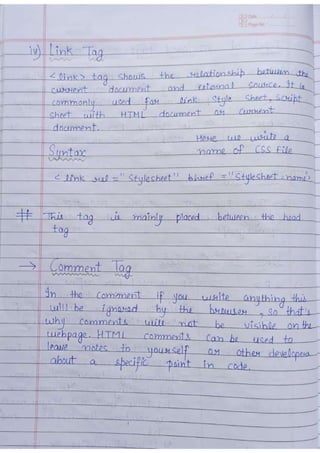 Date
Page No
iv) Link Tag
<link> tag shows the relationship between the
current document and external source. It is
commonly used for link style sheet, script
sheet with HTML document or current
document.
Here we write a
Syntax name of CSS file
< link rel = "Stylesheet" href = "Stylesheet name">
# This tag is mainly placed between the head
tag
→ Comment Tag
In the comment if you write anything this
will be ignored by the browser, so that's
why comments will not be visible on the
webpage. HTML comments can be used to
leave notes to yourself or other developers
about a specific point in code.